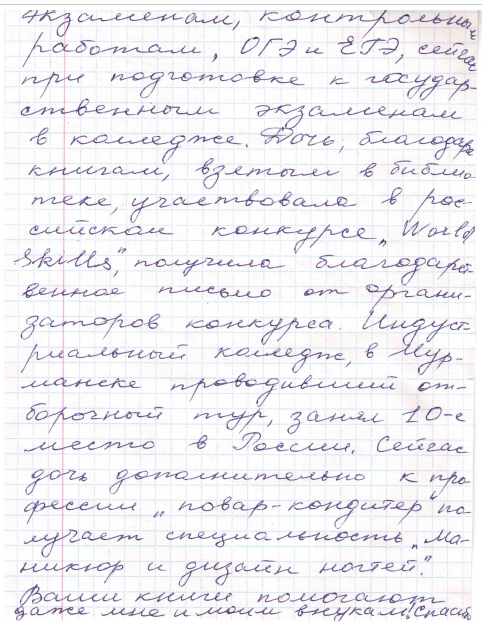 экзаменам, контрольным
работам, ОГЭ и ЕГЭ, сейчас
при подготовке к государ-
ственным экзаменам
в колледже. Дочь, благодаря
книгам, взятым в библио
теке, участвовала в рос-
сийском конкурсе „World
Skills", получила благодарст
венное письмо от органи-
заторов конкурса. Индуст
риальный колледж, в Мур-
манске проводивший от-
борочный тур, занял 10-е
место в России. Сейчас
дочь дополнительно к про
фессии „повар-кондитер" по
лучает специальность „Ма-
никюр и дизайн ногтей".
Ваши книги помогают
даже мне и моим внукам! Спасибо